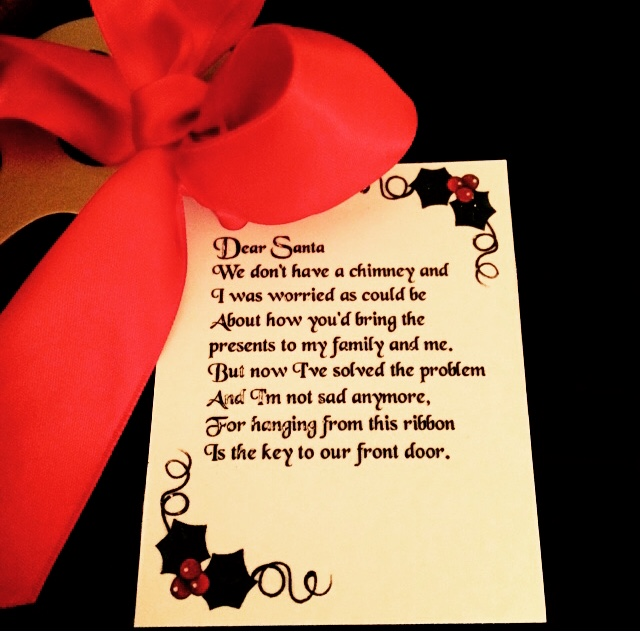 Dear Santa
We don't have a chimney and
I was worried as could be
About how you'd bring the
presents to my family and me.
But now I've solved the problem
And I'm not sad anymore,
For hanging from this ribbon
Is the key to our front door.